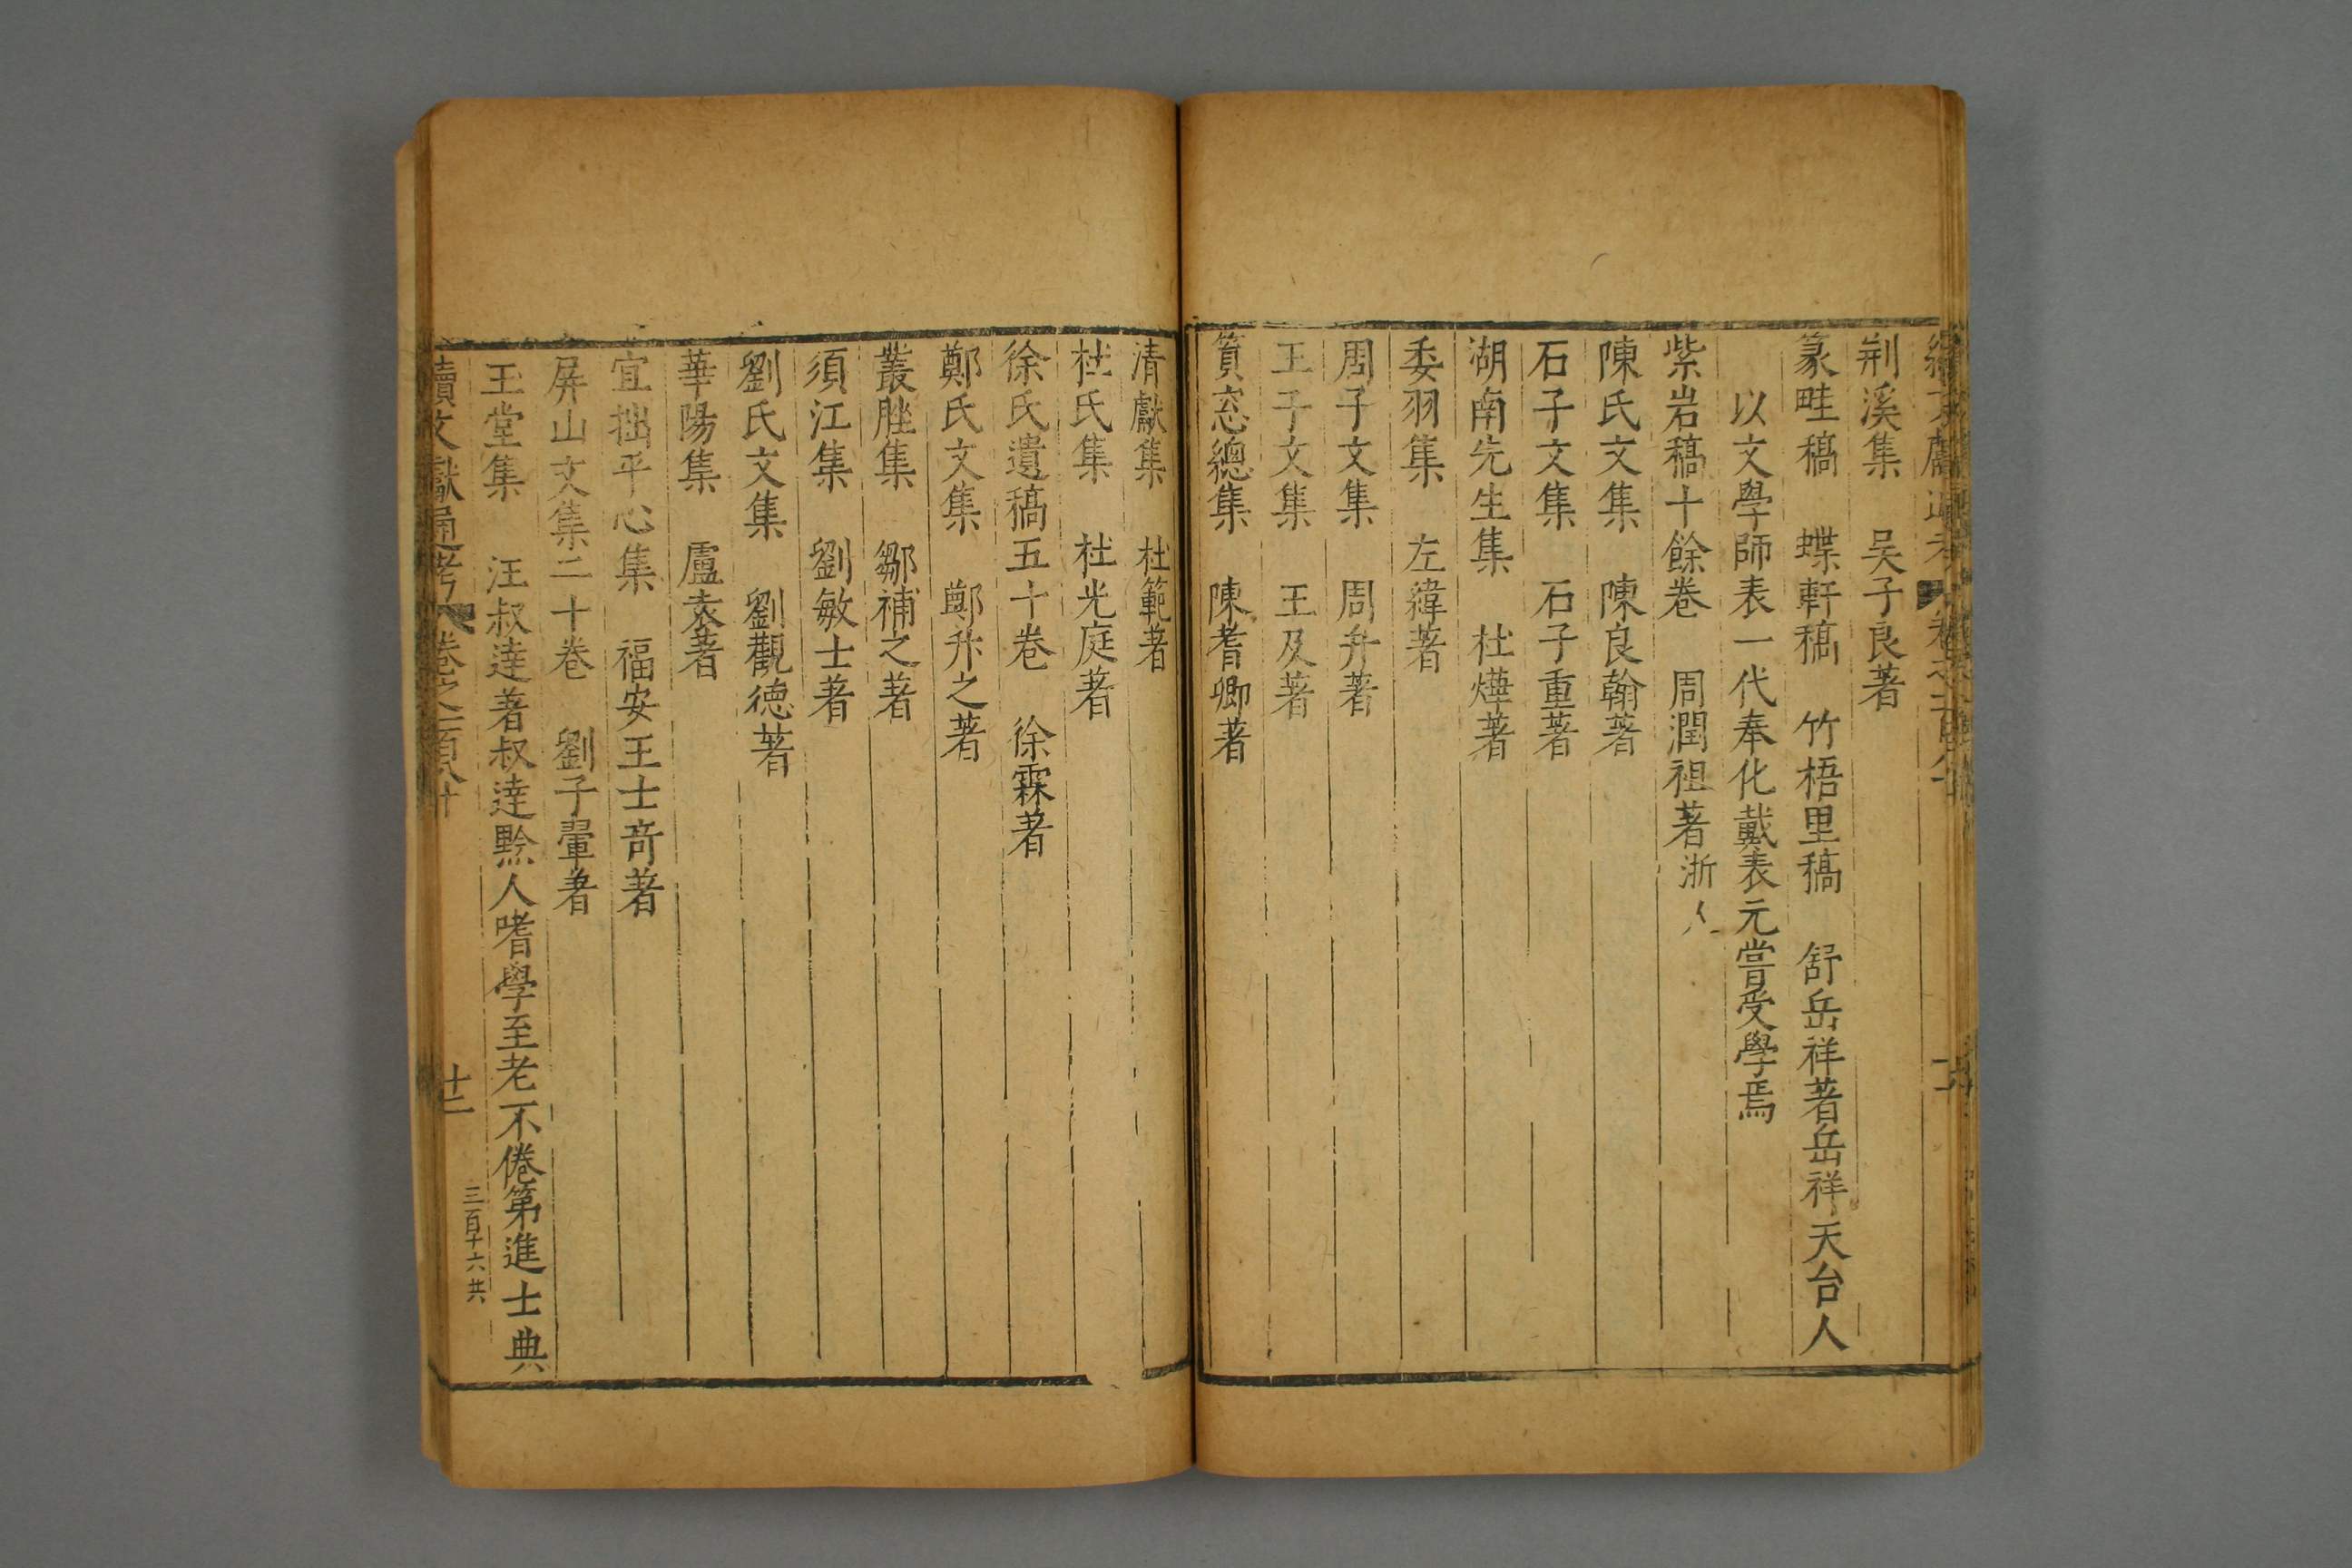 荆溪集　吴子良著
篆畦稿　蝶軒稿　竹梧里稿　舒岳祥著岳祥天台人
以文學師表一代奉化戴表元嘗受學焉
紫岩稿十餘卷　周潤祖著浙人
陳氏文集　陳良翰著
石子文集　石子重著
湖南先生集　杜燁著
委羽集　左緯著
周子文集　周升著
王子文集　王及著
篔窓總集　陳耆卿著
清獻集　杜範著
杜氏集　杜光庭著
徐氏遺稿五十卷　徐霖著
鄭氏文集　鄭升之著
叢脞集　鄒補之著
須江集　劉敏士著
劉氏文集　劉觀德著
華陽集　盧袤著
宜拙平心集　福安王士奇著
屏山文集二十卷　劉子翬著
玉堂集　汪叔達著叔達黟人嗜學至老不倦第進士典
續文獻通考　卷之一百八十　廿二　三百十六共